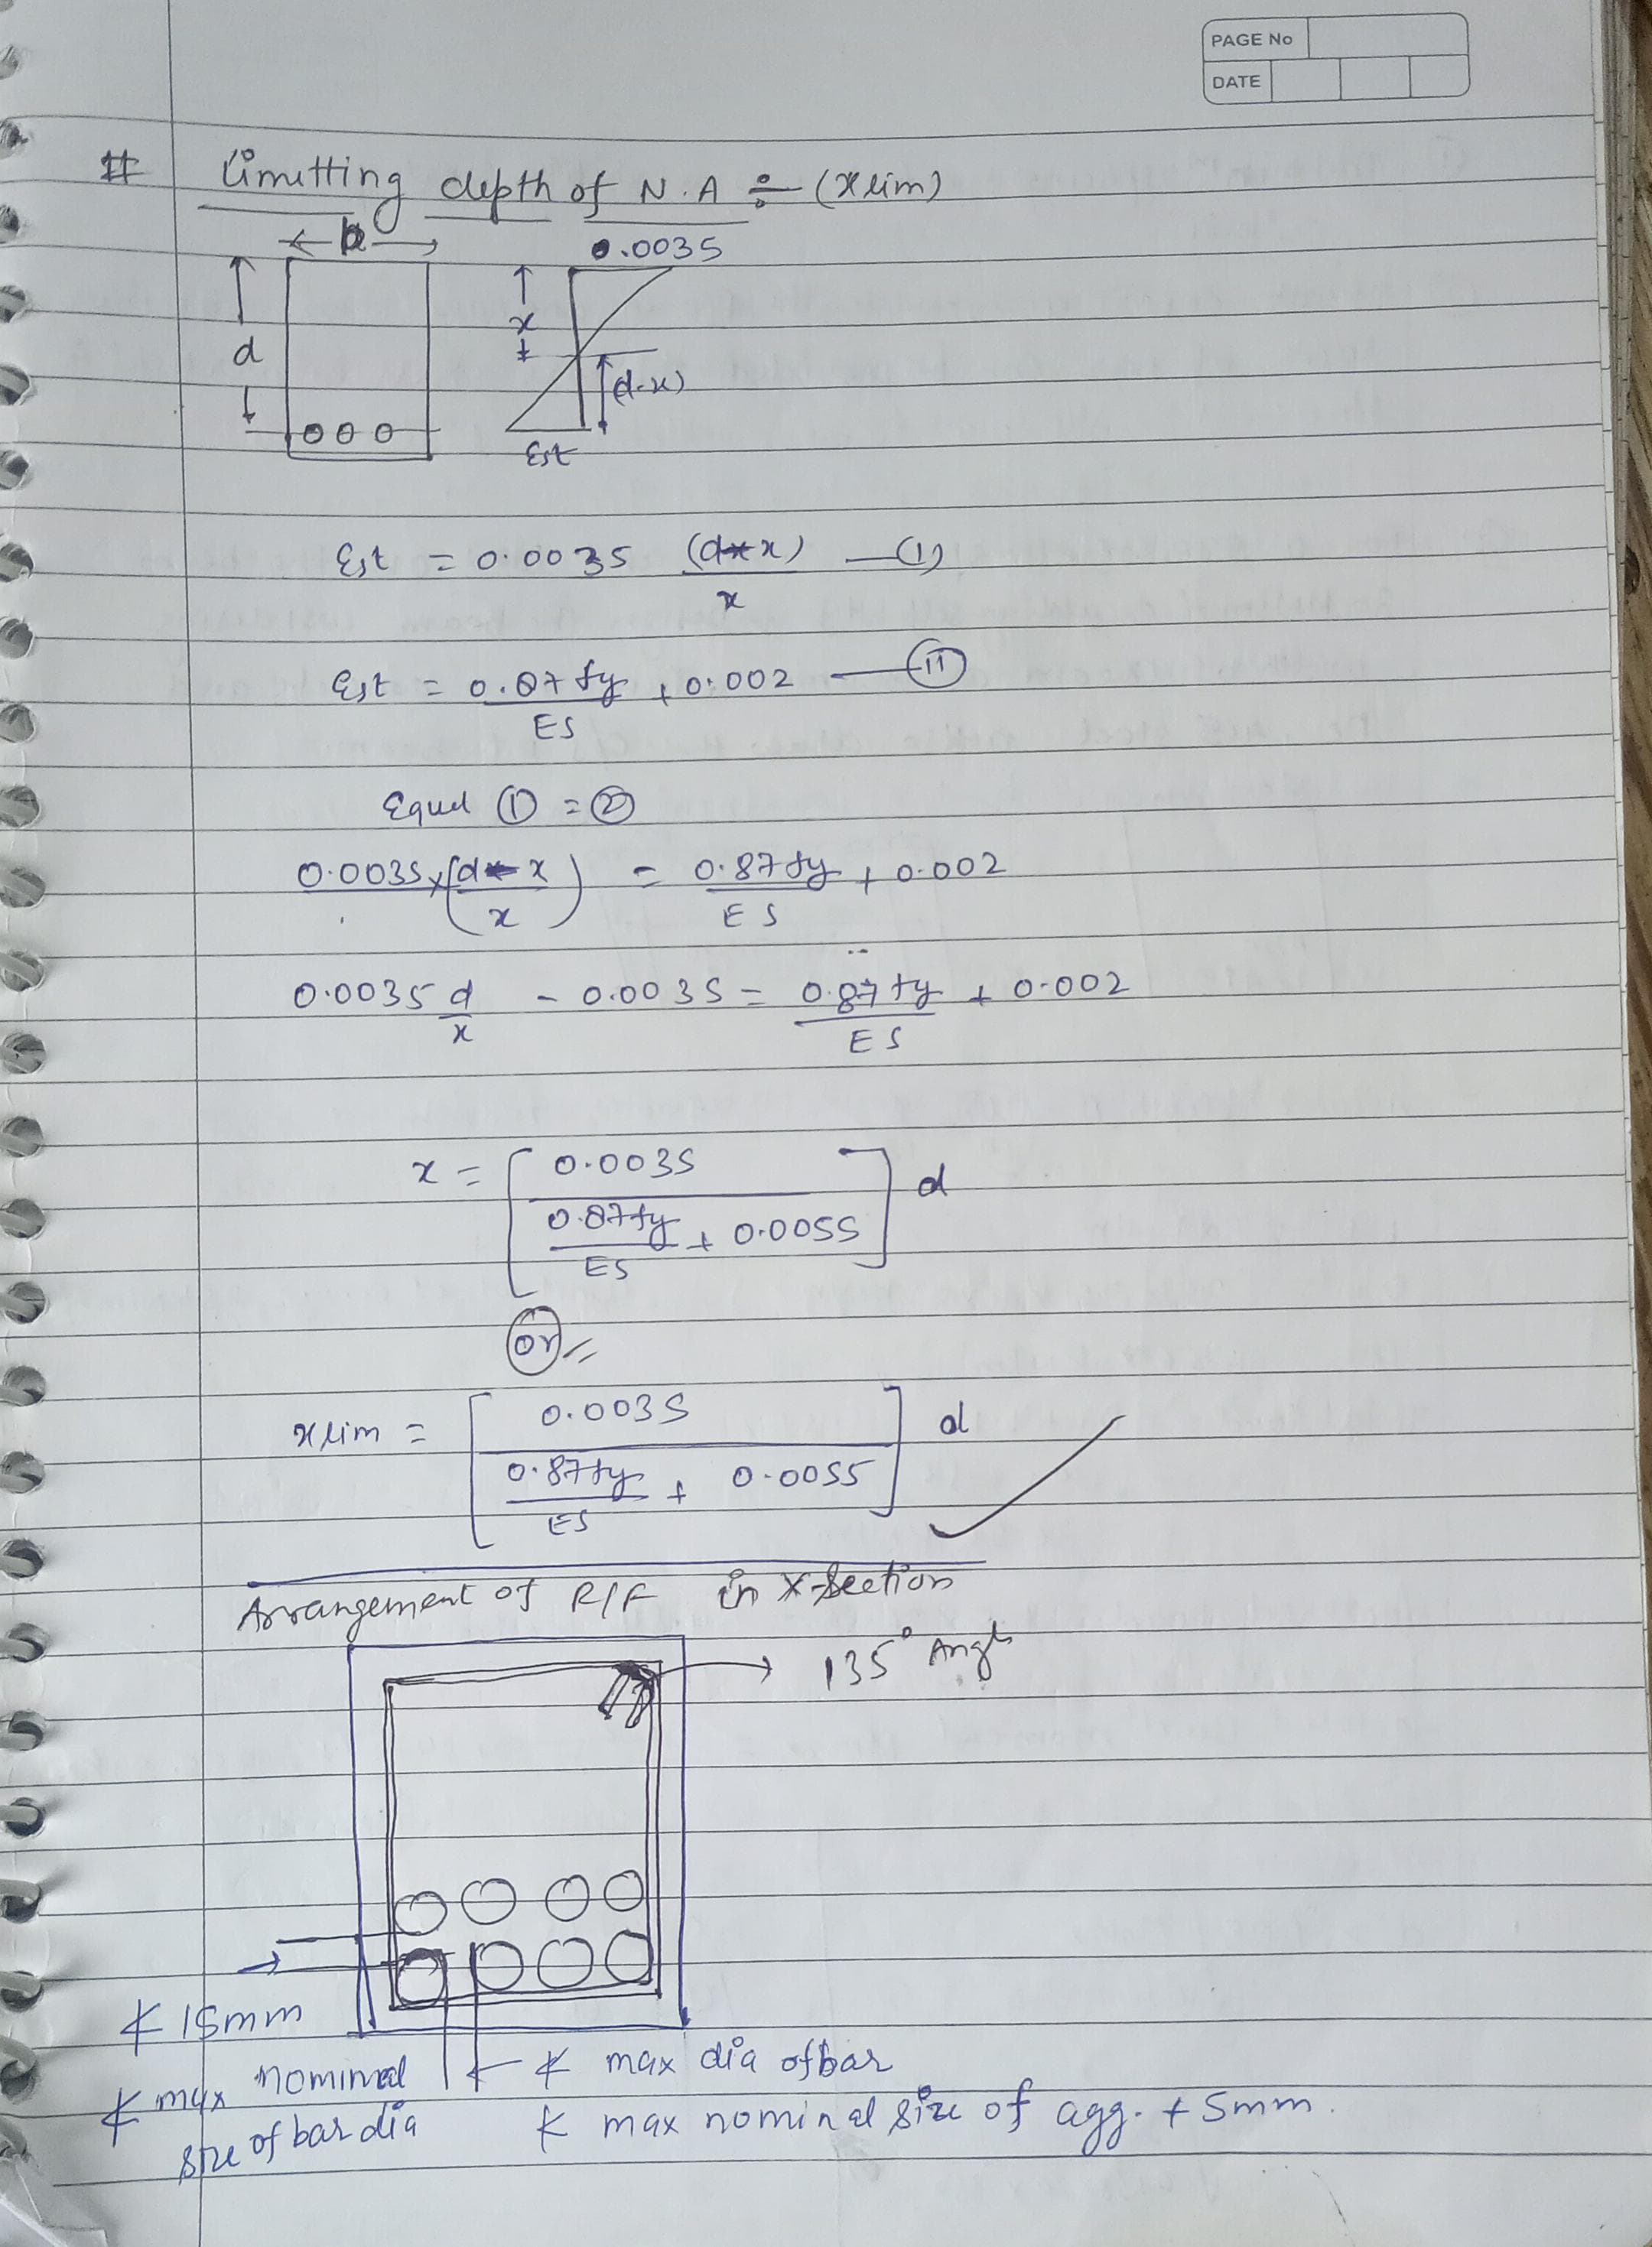 PAGE No
DATE
# Limitting depth of N.A ÷ (x lim)
b
0.0035
d
x
(d-x)
Est
Est = 0.0035 (d-x)/x —(1)
Est = 0.87fy/ES + 0.002 —(11)
Equel ① = ②
0.0035 x (d-x/x) = 0.87fy/ES + 0.002
0.0035 d/x - 0.0035 = 0.87fy/ES + 0.002
x = [0.0035 / 0.87fy/ES + 0.0055] d
or =
x lim = [0.0035 / 0.87fy/ES + 0.0055] d
Arrangement of R/F in X-Section
135° Angle
≮ 15mm
≮ max nominal
size of bar dia
≮ max dia of bar
≮ max nominal size of agg. + 5mm.